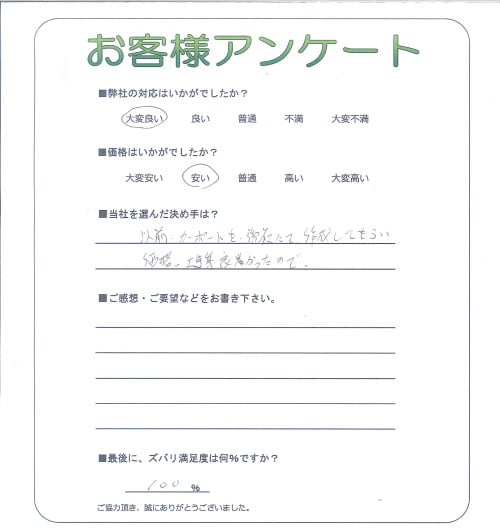 お客様アンケート
■弊社の対応はいかがでしたか？
大変良い 良い 普通 不満 大変不満
■価格はいかがでしたか？
大変安い 安い 普通 高い 大変高い
■当社を選んだ決め手は？
以前、カーポートを、御社にて、作成してもらい
価格、工事良かったので、
■ご感想・ご要望などをお書き下さい。
■最後に、ズバリ満足度は何％ですか？
100 ％
ご協力頂き、誠にありがとうございました。